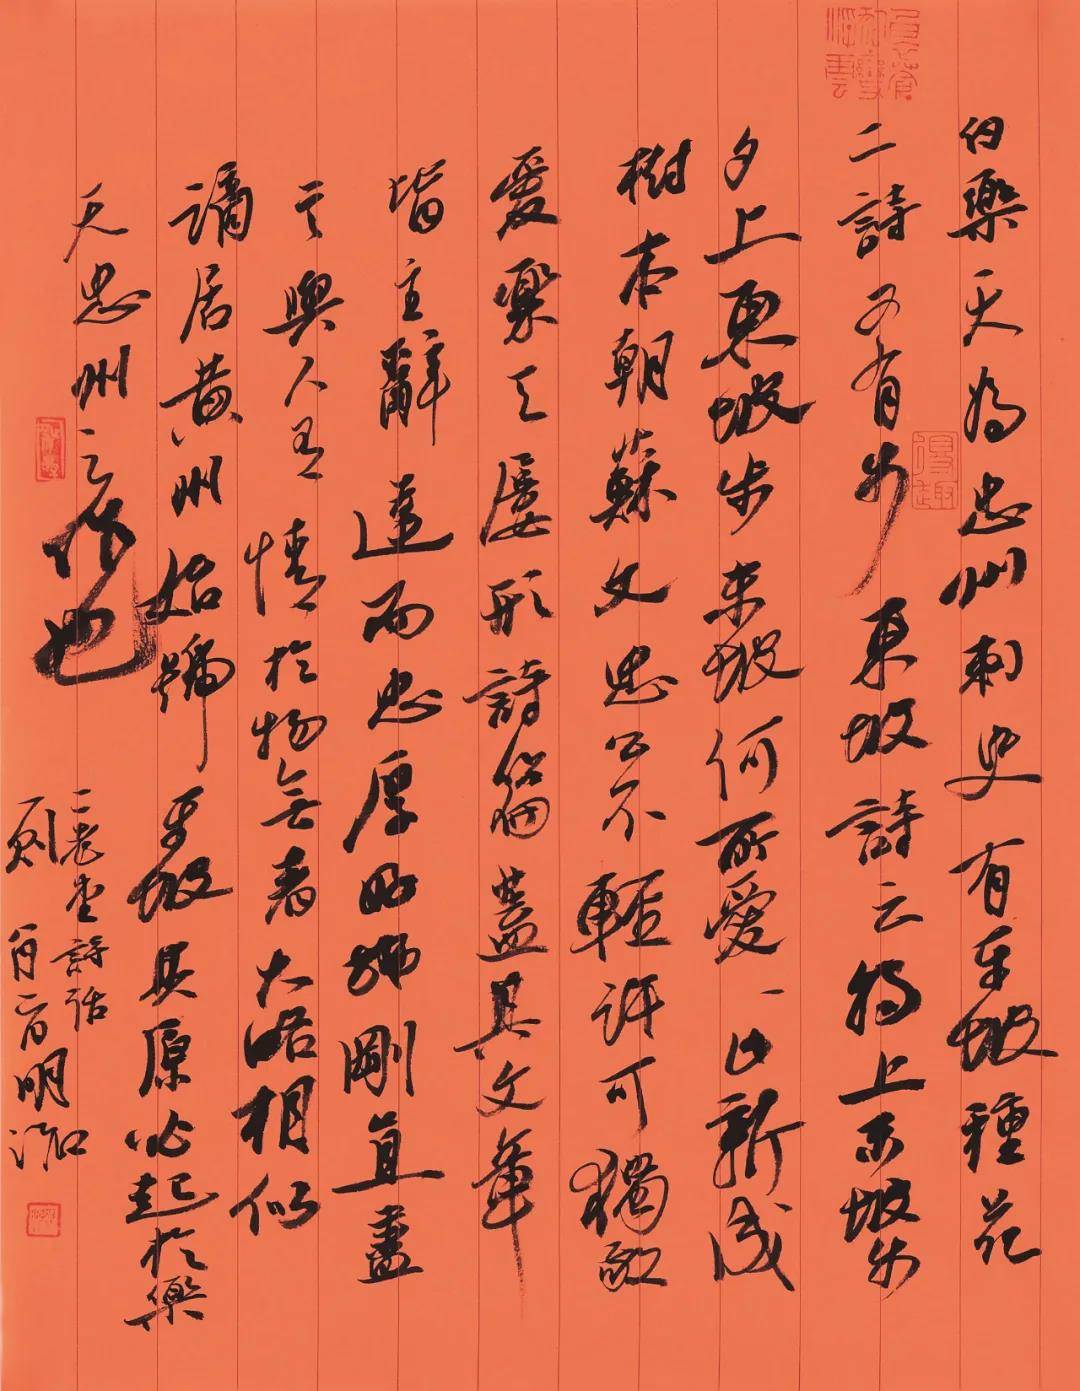 白樂天為忠州刺史有東坡種花
二詩又有步東坡詩云朝上東坡步
夕上東坡步東坡何所愛々此新成
樹本朝蘇文忠公不輕許可獨敬
愛樂天屢形詩篇蓋其文章
皆主辭達而忠厚好施剛直盡
言與人有情於物無著大略相似
謫居黃州始號東坡其原必起於樂
天忠州之作也
二老堂詩話
則 明泓
得趣